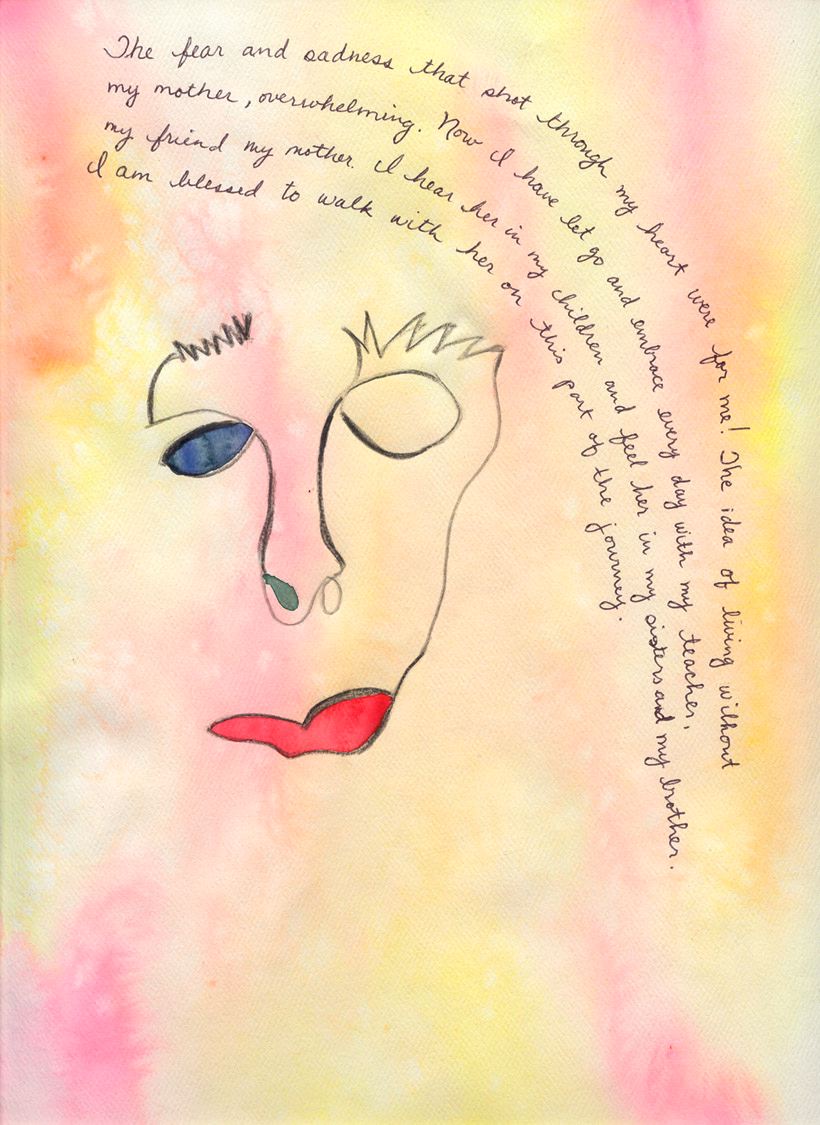 The fear and sadness that shot through my heart were for me! The idea of living without
my mother, overwhelming. Now I have let go and embrace every day with my teacher,
my friend my mother. I hear her in my children and feel her in my sisters and my brother.
I am blessed to walk with her on this part of the journey.